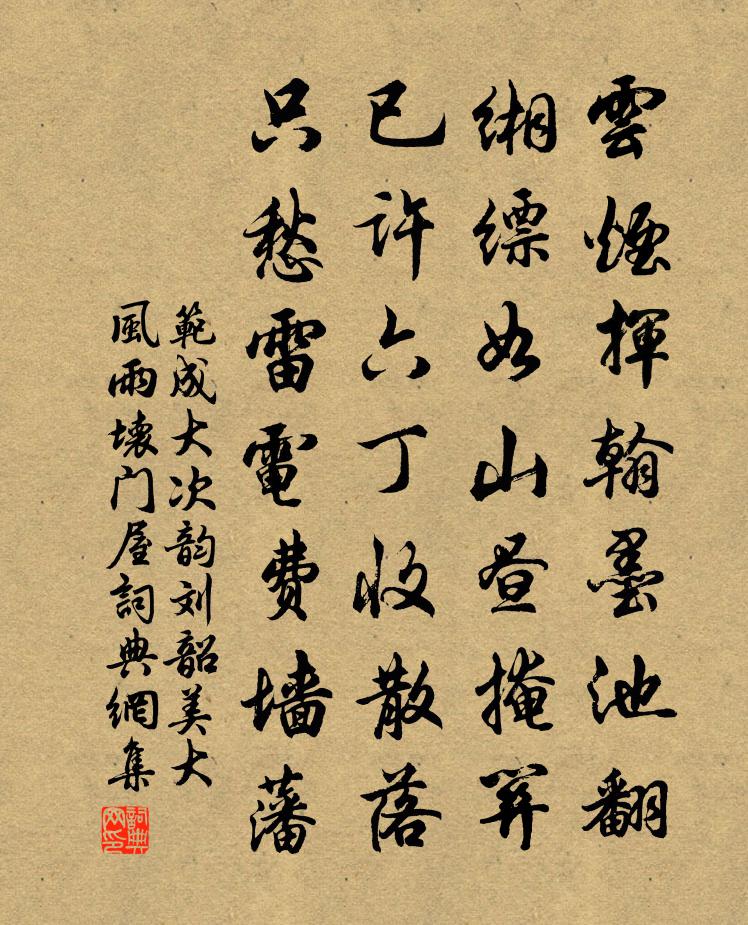 雲煙揮翰墨池翻
緗縹如山昼掩關
已許六丁收散落
只愁雷電費墙藩
範成大次韵刘韶美大
風雨壞门屋詞典網集
詞典
网印